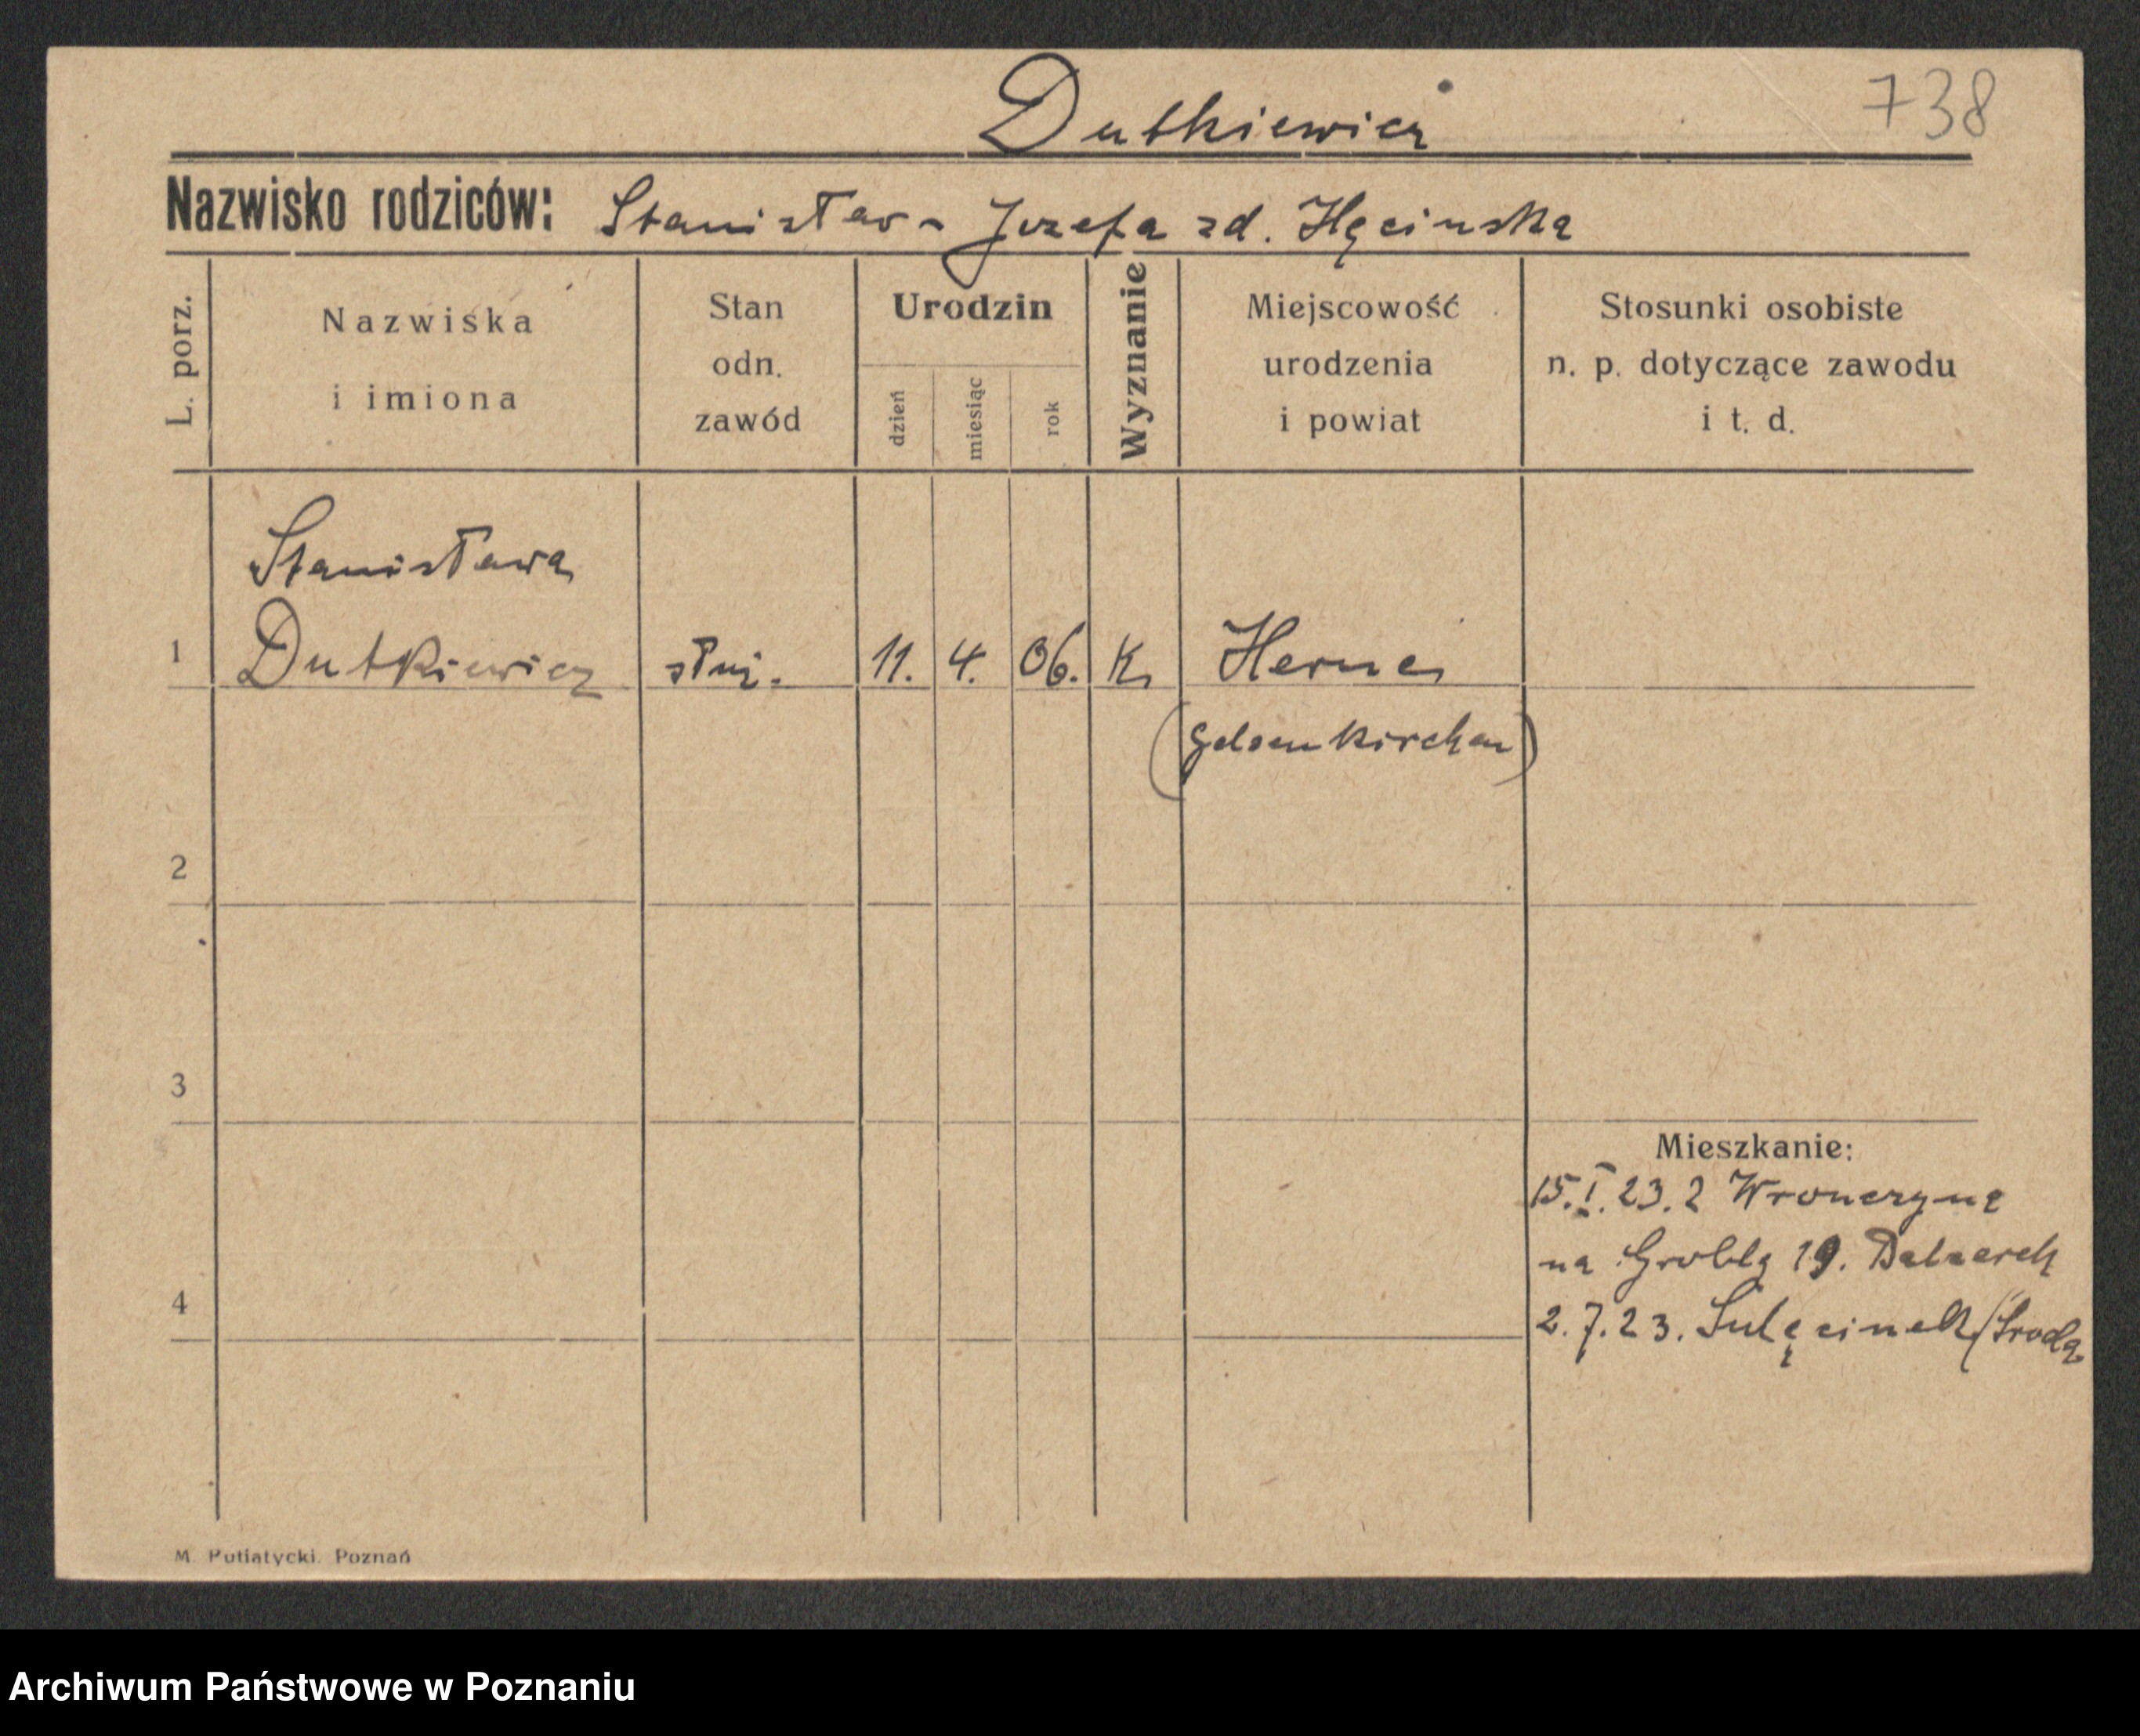 738
Dutkiewicz
Nazwisko rodziców: Stanisław - Józefa zd. Hęcinska
L. porz.
Nazwiska
i imiona
Stan
odn.
zawód
Urodzin
dzień
miesiąc
rok
Wyznanie
Miejscowość
urodzenia
i powiat
Stosunki osobiste
n. p. dotyczące zawodu
i t. d.
Stanisława
1 Dutkiewicz służ. 11. 4. 06. K. Herne
(Gelsenkirchen)
2
3
Mieszkanie:
15.I.23. z Wronczyna
na Groblę 19.
4
2.7.23. Sulęcinek/Środa
M. Putiatycki. Poznań
Archiwum Państwowe w Poznaniu